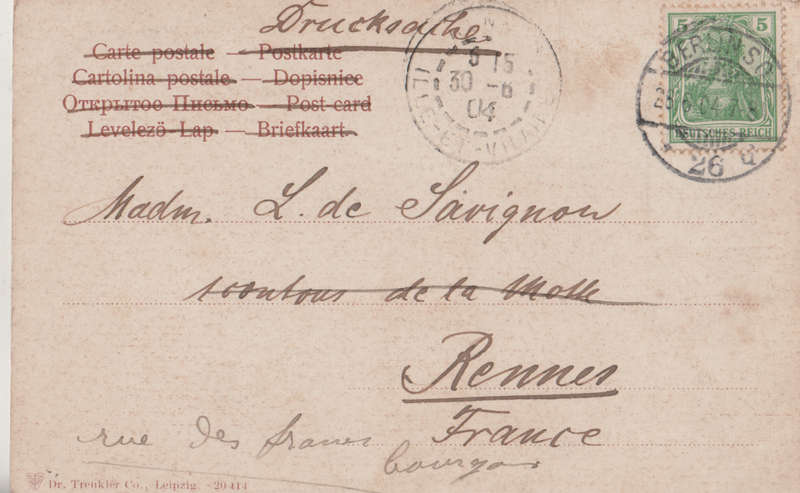 Drucksache
Carte postale — Postkarte
Cartolina postale — Dopisnice
Открытое Письмо — Post-card
Levelezö Lap — Briefkaart
5 15
30 -6
04
ILLE-ET-VILAINE
5 5
DEUTSCHES REICH
BERLIN S.
6.04.7
26
Madm. L. de Savignon
de la Motte
Rennes
France
rue des francs
bourgeois
Dr. Trenkler Co., Leipzig. - 20414